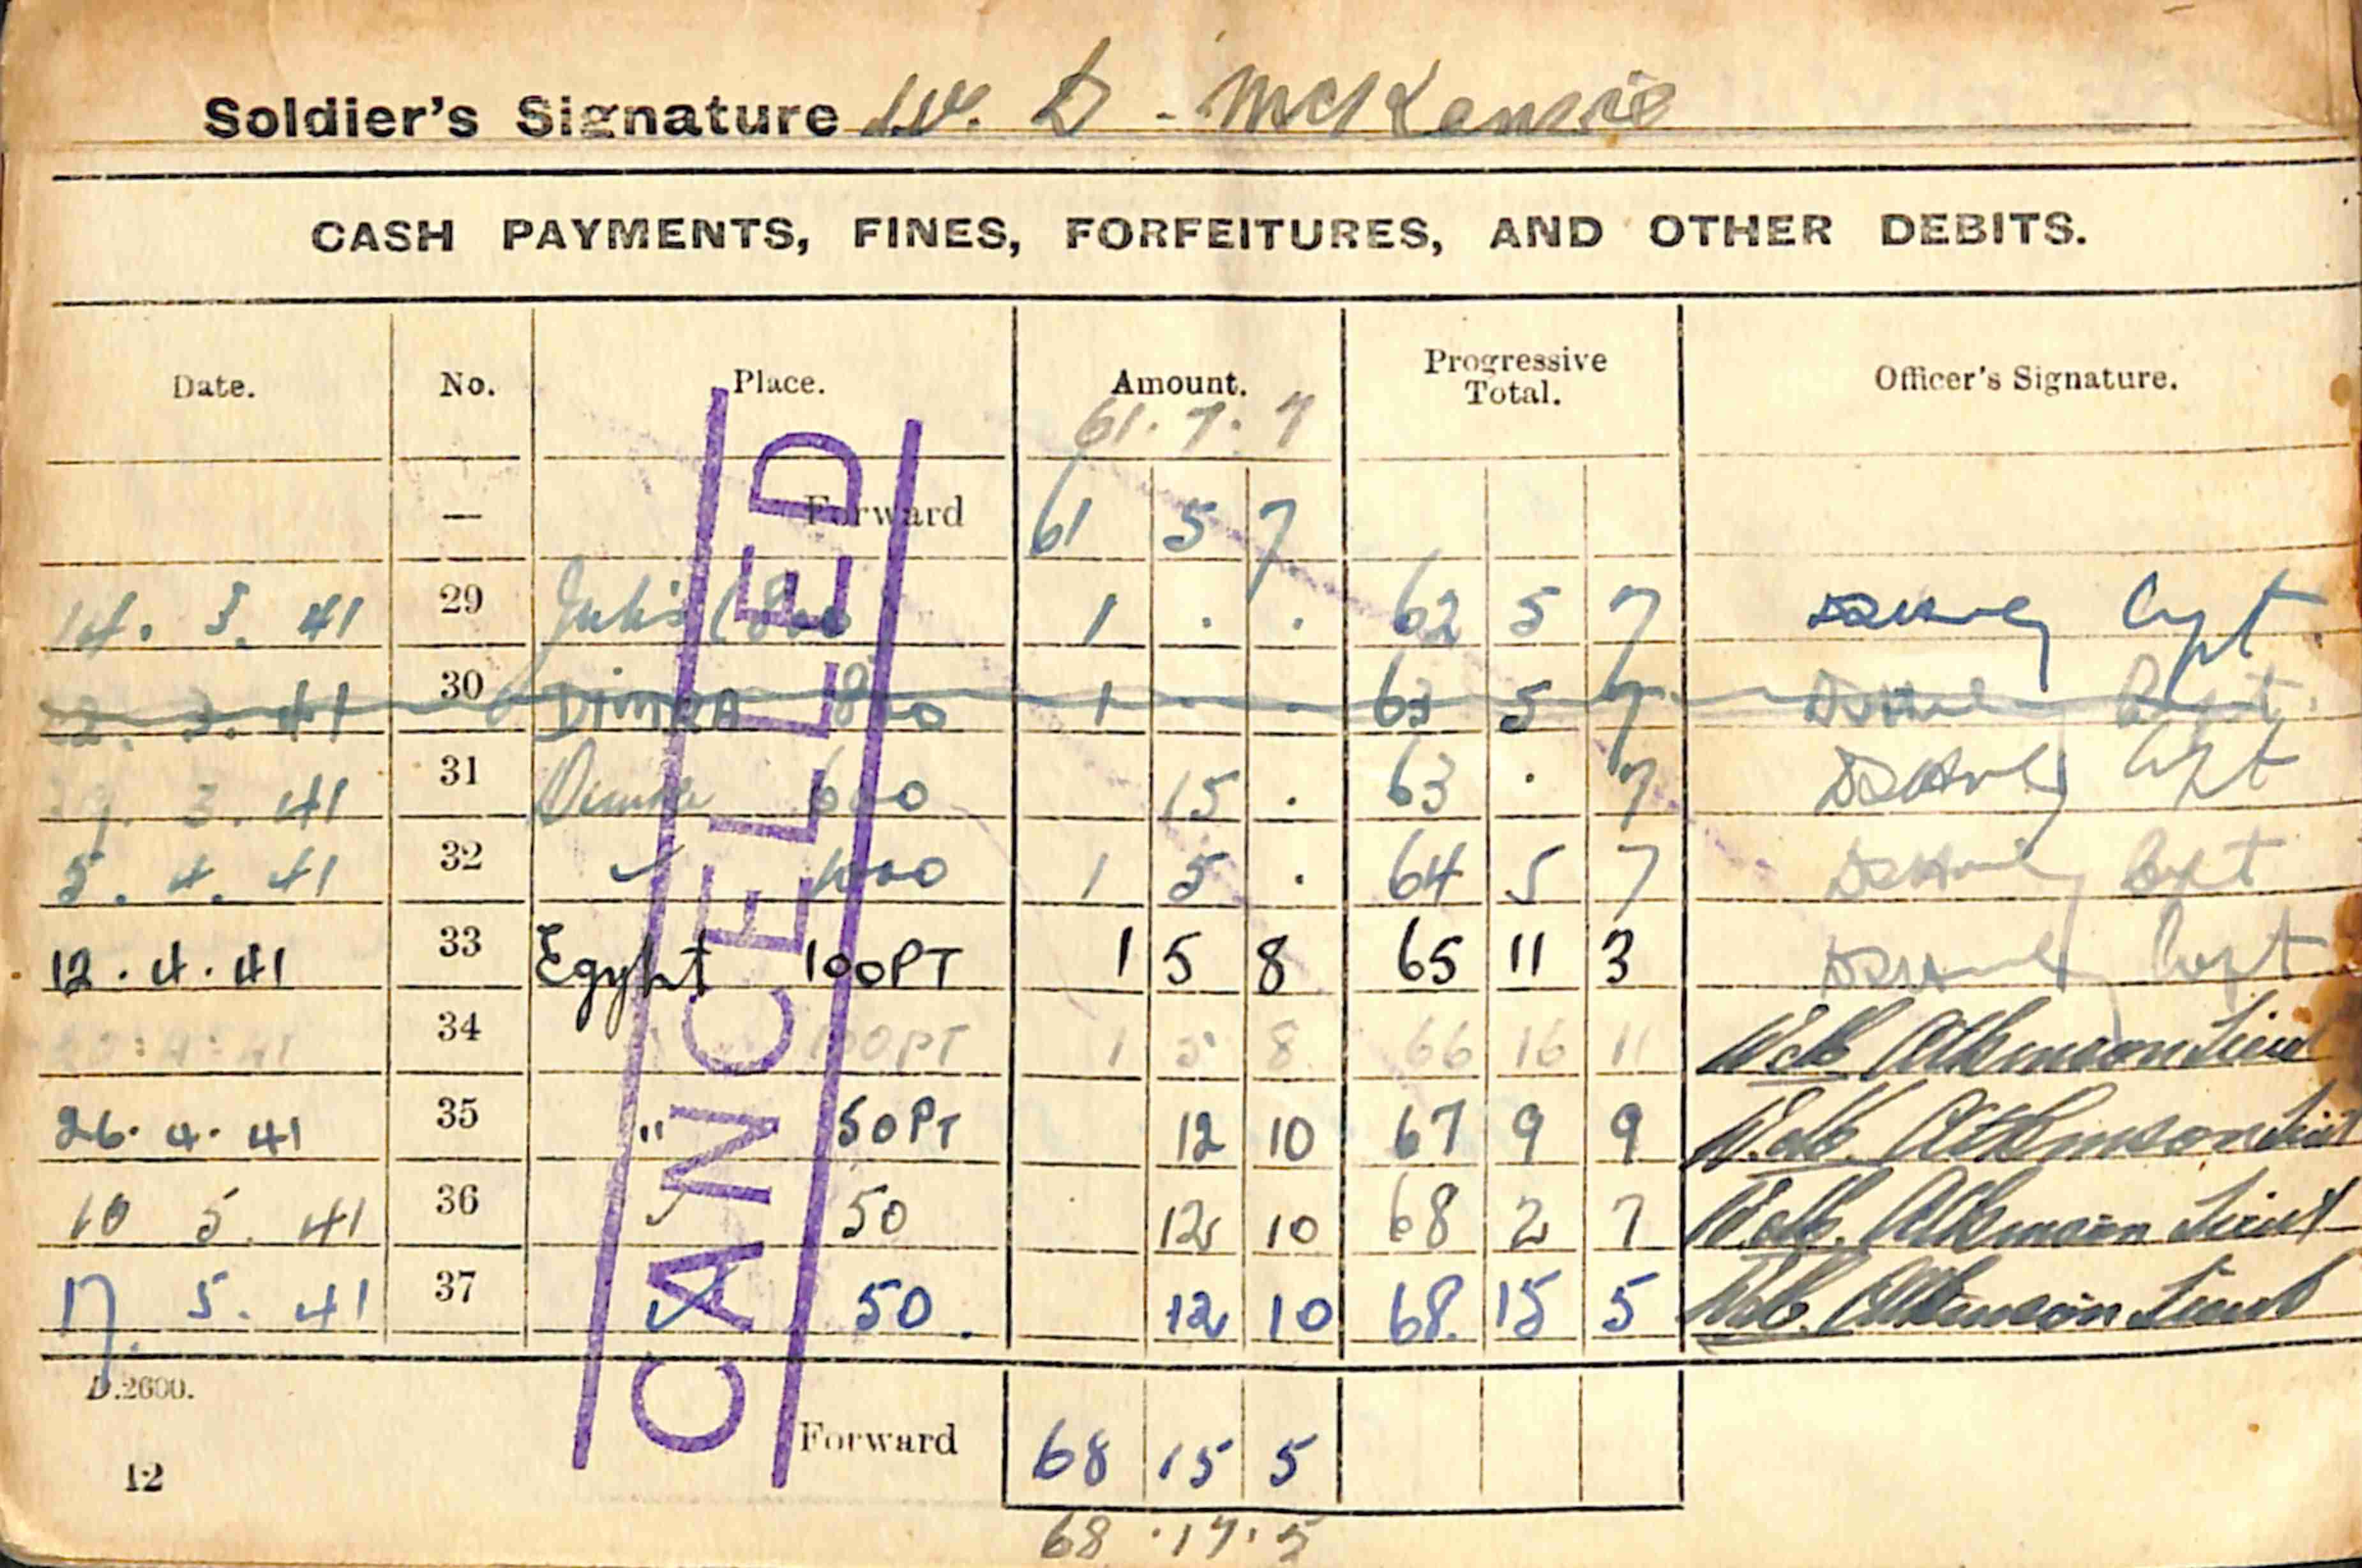 Soldier's Signature W. D - McKenzie
CASH PAYMENTS, FINES, FORFEITURES, AND OTHER DEBITS.
Date. No. Place. Amount. Progressive Total. Officer's Signature.
61. 7. 7
— Forward 61 5 7
14. 3. 41 29 Julis (800 1 . . 62 5 7 Capt
22. 3. 41 30 DIMRA 800 1 . . 63 5 7 Capt.
29. 3. 41 31 Dimra 600 15 . 63 . 7 Capt
5. 4. 41 32 1000 1 5 . 64 5 7 Capt
12. 4. 41 33 Egypt 100PT 1 5 8 65 11 3 Capt
34 100PT 1 5 8 66 16 11 Atkinson Lieut
26. 4. 41 35 " 50PT 12 10 67 9 9 Atkinson Lieut
10 5. 41 36 50 12 10 68 2 7 Atkinson Lieut
17. 5. 41 37 50. 12 10 68. 15 5 Atkinson Lieut
CANCELLED
D.2600.
Forward 68 15 5
12
68 . 17. 5